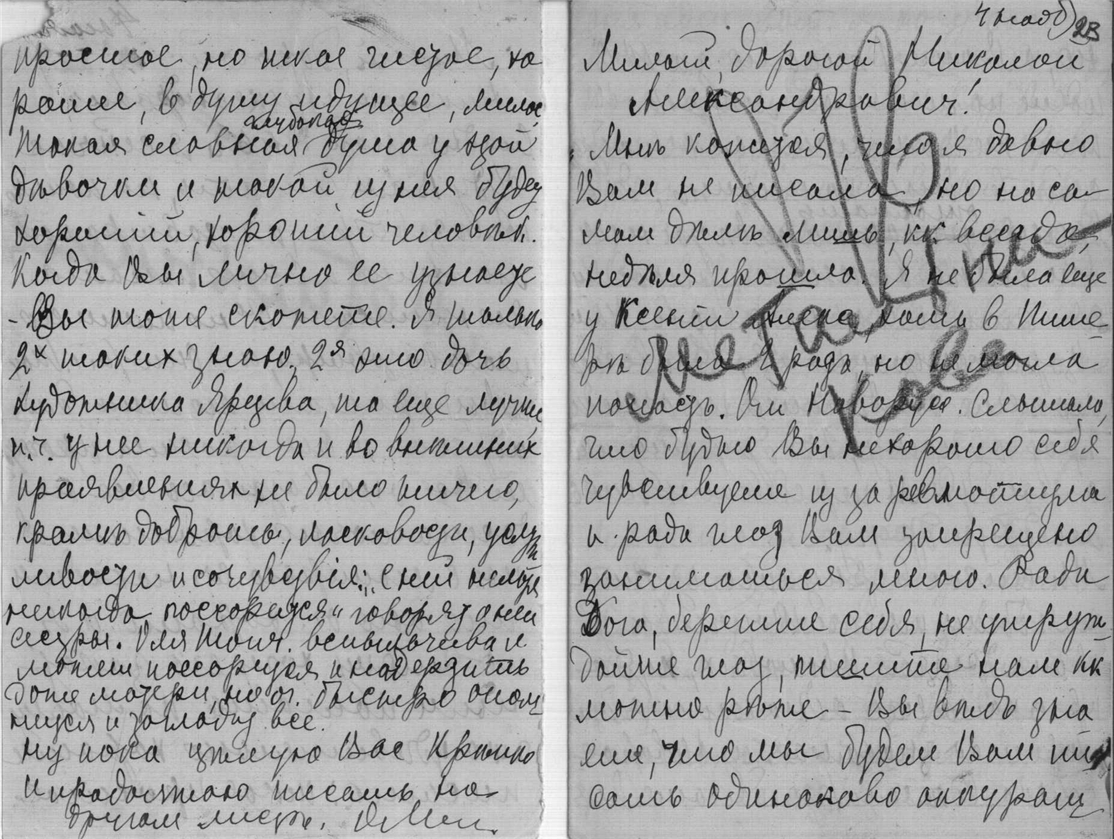 простое, но такое чистое, хо
рошее, в душу идущее, милое
глубокая
Такая славная душа у этой
девочки и такой из нея будет
хорошiй, хорошiй человѣкъ.
Когда Вы лично ее узнаете
- Вы тоже скажете. Я только
2х таких знаю. 2я это дочь
художника Ярцева, та еще лучше
п.ч. у нее никогда и во внѣшних
проявленiях не было ничего,
кромѣ доброты, ласковости, услуж
ливости и сочувствiя: „с ней нельзя
никогда поссорится" говорят о ней
сестры. Оля тоже вспыльчива и
может поссорится и надерзить
даже матери, но быстро опом
нится и загладит все.
Ну пока цѣлую Вас крѣпко
и продолжаю писать на
другом листе.
4 нояб
Милый, дорогой Николай
Александрович!
Мнѣ кажется, что я давно
Вам не писала, но на са
мом дѣлѣ лишь, кк всегда,
недѣля прошла. Я не была еще
у Ксенiи, хотя в Пите
рѣ была 2 раза, но не могла
попасть. Слышала,
что будто Вы нехорошо себя
чувствуете из за ревматизма
и ради глаз Вам запрещено
заниматься много. Ради
Бога, берегите себя, не утруж
дайте глаз, пишите нам кк
можно рѣже - Вы вѣдь зна
ете, что мы будем Вам пи
сать одинаково аккурат